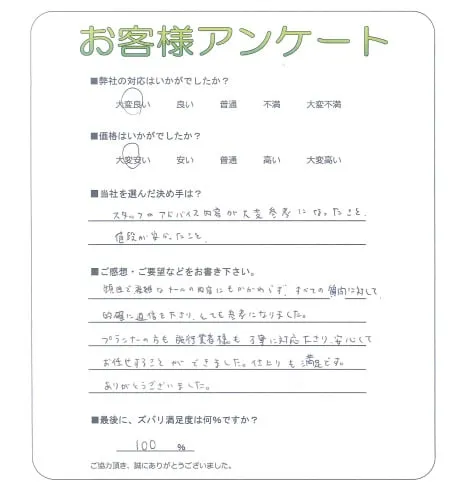 お客様アンケート
■弊社の対応はいかがでしたか？
大変良い 良い 普通 不満 大変不満
■価格はいかがでしたか？
大変安い 安い 普通 高い 大変高い
■当社を選んだ決め手は？
スタッフのアドバイス内容が大変参考になったこと、
値段が安かったこと
■ご感想・ご要望などをお書き下さい。
なメールの内容にもかかわらず、すべての質問に対して、
的確に返信を下さり、とても参考になりました。
プランナーの方も施行業者様も丁寧に対応下さり、安心して
お任せすることができました。仕上りも満足です。
ありがとうございました。
■最後に、ズバリ満足度は何%ですか？
100 %
ご協力頂き、誠にありがとうございました。